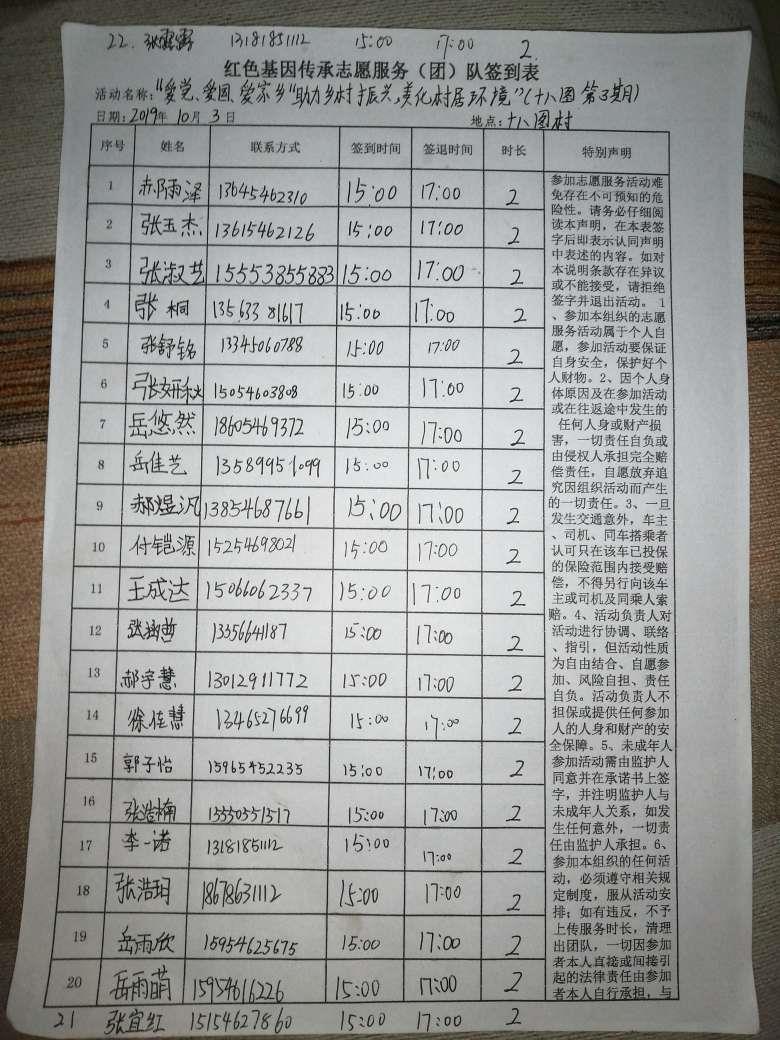 22. 张露露 13181851112 15:00 17:00 2
红色基因传承志愿服务（团）队签到表
活动名称："爱党、爱国、爱家乡"助力乡村振兴，美化村居环境"（十八图第3期）
日期：2019年10月3日 地点：十八图村
序号 姓名 联系方式 签到时间 签退时间 时长 特别声明
1 郝雨泽 13645462310 15:00 17:00 2
2 张玉杰 13615462126 15:00 17:00 2
3 张淑艺 15553855883 15:00 17:00 2
4 张桐 13563381617 15:00 17:00 2
5 张舒铭 13345060788 15:00 17:00 2
6 张妍秋 15054603808 15:00 17:00 2
7 岳悠然 18605469372 15:00 17:00 2
8 岳佳艺 13589951099 15:00 17:00 2
9 郝煜汎 13854687661 15:00 17:00 2
10 付铠源 15254698021 15:00 17:00 2
11 王成达 15066062337 15:00 17:00 2
12 张涵哲 13356641187 15:00 17:00 2
13 郝宇慧 13012911772 15:00 17:00 2
14 徐佳慧 13465276699 15:00 17:00 2
15 郭子怡 15965452235 15:00 17:00 2
16 张浩楠 15550551517 15:00 17:00 2
17 李一诺 13181851112 15:00 17:00 2
18 张浩玥 18678631112 15:00 17:00 2
19 岳雨欣 15954625675 15:00 17:00 2
20 岳雨萌 15954616226 15:00 17:00 2
21 张宜红 15154627860 15:00 17:00 2
参加志愿服务活动难
免存在不可预知的危
险性。请务必仔细阅
读本声明，在本表签
字后即表示认同声明
中表述的内容。如对
本说明条款存在异议
或不能接受，请拒绝
签字并退出活动。1
、参加本组织的志愿
服务活动属于个人自
愿，参加活动要保证
自身安全，保护好个
人财物。2、因个人身
体原因及在参加活动
或在往返途中发生的
任何人身或财产损
害，一切责任自负或
由侵权人承担完全赔
偿责任，自愿放弃追
究因组织活动而产生
的一切责任。3、一旦
发生交通意外，车主
、司机、同车搭乘者
认可只在该车已投保
的保险范围内接受赔
偿，不得另行向该车
主或司机及同乘人索
赔。4、活动负责人对
活动进行协调、联络
、指引，但活动性质
为自由结合、自愿参
加、风险自担、责任
自负。活动负责人不
担保或提供任何参加
人的人身和财产的安
全保障。5、未成年人
参加活动需由监护人
同意并在承诺书上签
字，并注明监护人与
未成年人关系，如发
生任何意外，一切责
任由监护人承担。6、
参加本组织的任何活
动，必须遵守相关规
定制度，服从活动安
排；如有违反，不予
上传服务时长，清理
出团队，一切因参加
者本人直接或间接引
起的法律责任由参加
者本人自行承担，与